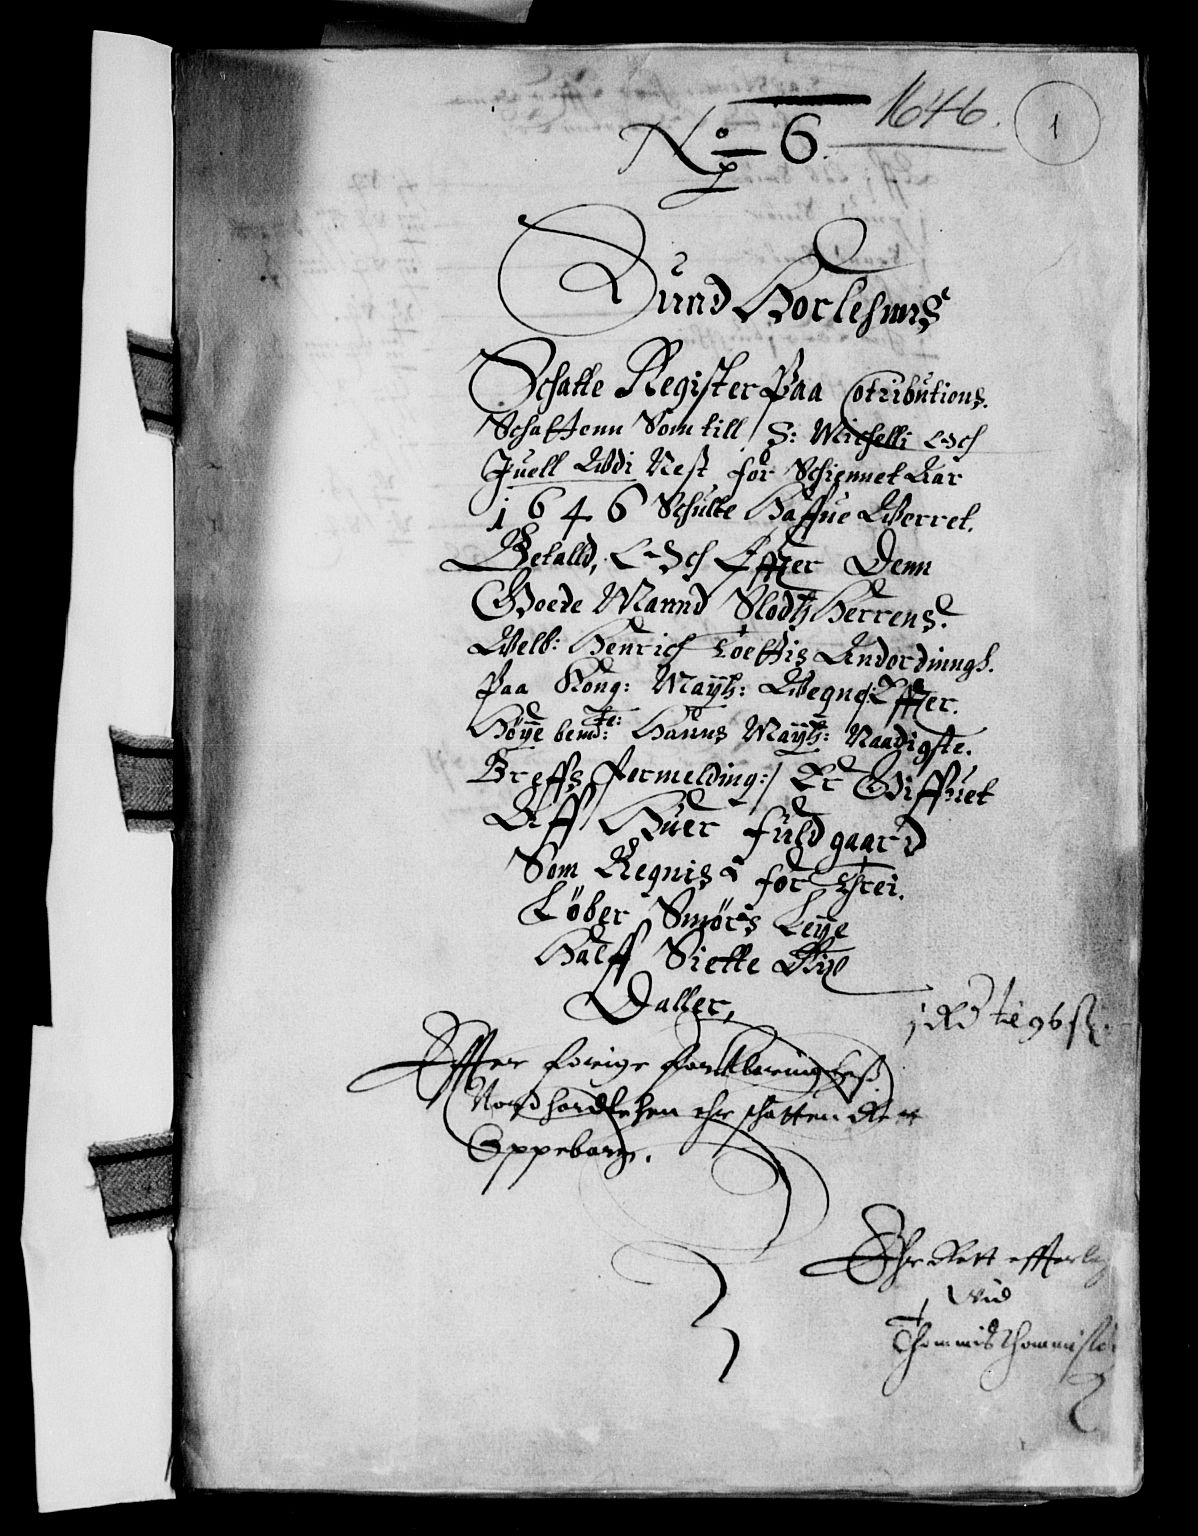 1646.
1
No 6.
Sund Horlehnns
Schatte Register Paa Cotributions.
Schattenn Som till S: Michelli och
Juell Udi Nest for Schiennet Aar
1646 Schulle Haffue Werret.
Betalld, och Effter Denn
Goede Mannd Slodtz Herrens.
Welb: Henrich Toettis Andordinngh.
Paa Kong: Maÿtz: Wegne/: Effter.
Höÿe bemte: Hanns Maÿtz: Naadigste.
Breffs formelding:/ Er Giffuet
Aff Huer fuldgaard
Som Regnis for Threi.
Löber Smörs Leÿe
Halff Siette Rix
Daller,
j Rd te 96 sk.
Effter forige forklaring
Nordhordlehen ehr schatten Rett
Oppebaren.
Ehr Rett effter
wid
Thommis Thommis